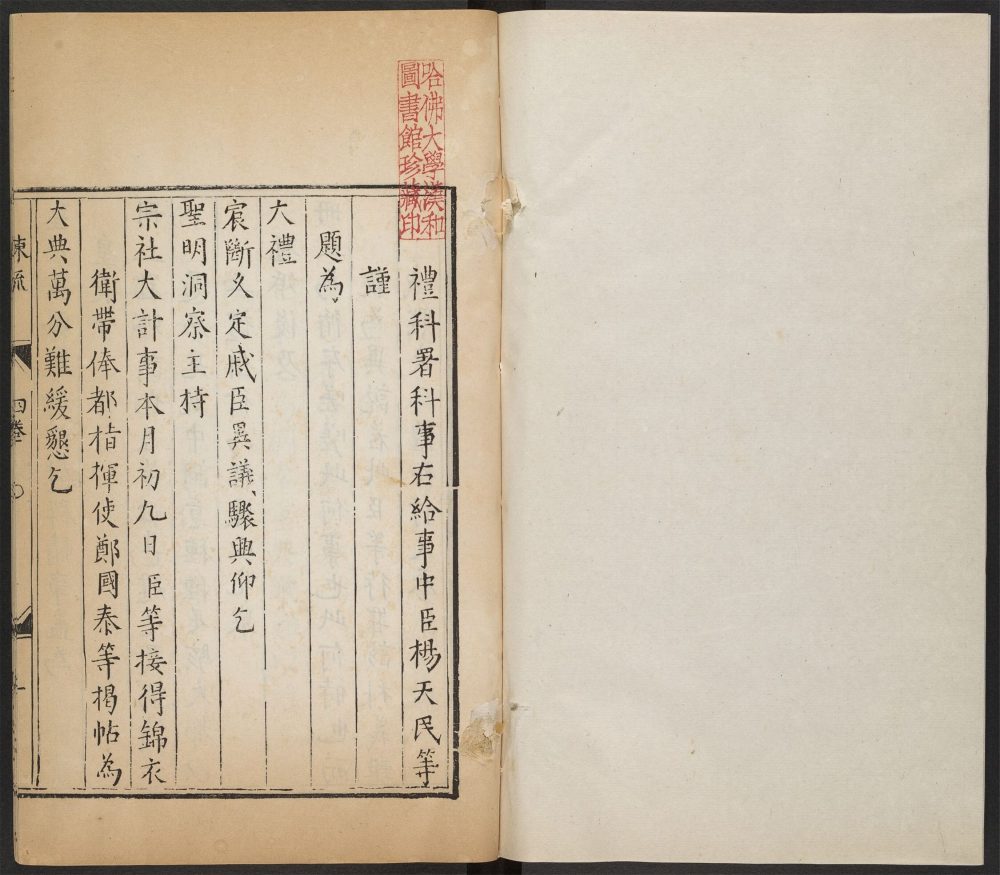 哈佛大學漢和
圖書館珍藏印
禮科署科事右給事中臣楊天民等
謹
題為
大禮
宸斷久定戚臣異議驟興仰乞
聖明洞察主持
宗社大計事本月初九日臣等接得錦衣
衛帶俸都指揮使鄭國泰等揭帖為
大典萬分難緩懇乞
四卷